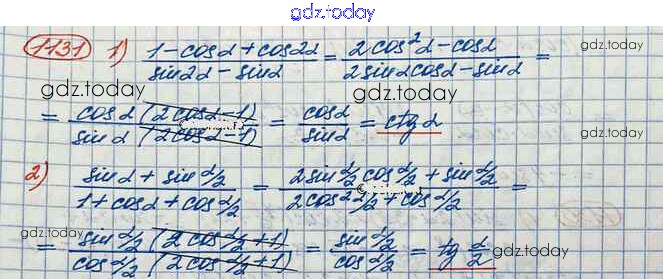 gdz.today
1131 1) (1 - cosα + cos2α)/(sin2α - sinα) = (2cos²α - cosα)/(2sinαcosα - sinα) =
gdz.today gdz.today
= (cosα (2cosα - 1))/(sinα (2cosα - 1)) = cosα/sinα = ctgα
gdz.today
2) (sinα + sin α/2)/(1 + cosα + cos α/2) = (2sin α/2 cos α/2 + sin α/2)/(2cos² α/2 + cos α/2) =
gdz.today gdz.today
= (sin α/2 (2cos α/2 + 1))/(cos α/2 (2cos α/2 + 1)) = (sin α/2)/(cos α/2) = tg α/2
gdz.today gdz.today